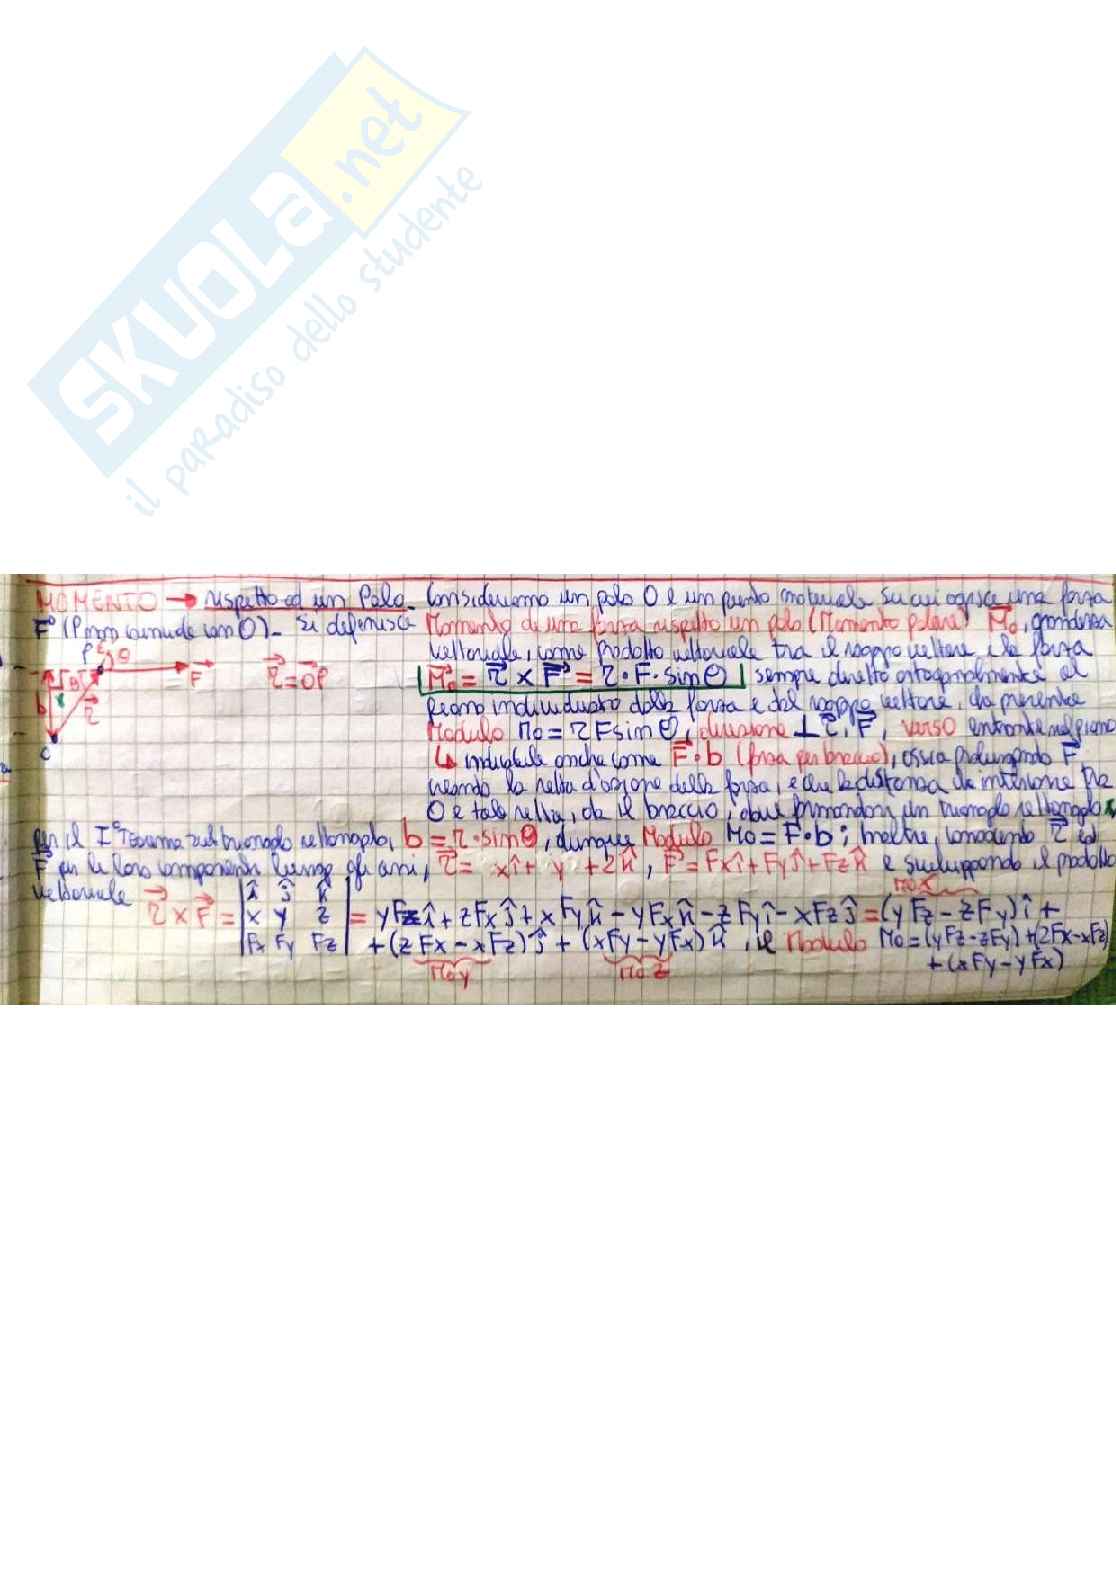 SKUOLA.net
il paradiso dello studente
MOMENTO → rispetto ad un Polo - Consideriamo un polo O e un punto materiale su cui agisce una forza
F (P non coincide con O) - Si definisce Momento di una forza rispetto un polo (Momento polare) M₀, grandezza
P θ F r = OP vettoriale, come prodotto vettoriale tra il raggio vettore e la forza
M₀ = r × F = r·F·sinθ sempre diretto ortogonalmente al
b θ r piano individuato dalla forza e dal raggio vettore, da presente
Modulo M₀ = r F sinθ, direzione ⊥ r, F, verso entrante nel piano
↳ indicabile anche come F·b (forza per braccio), ossia prolungando F
creando la retta d'azione della forza, e che la distanza fra
O e tale retta, da il braccio, dove formandosi un triangolo rettangolo
per il I° Teorema sul triangolo rettangolo, b = r·sinθ, dunque Modulo M₀ = F·b; inoltre, r ed
F per le loro componenti lungo gli assi, r = xî + y + zk̂, F = Fxî + Fyĵ + Fzk̂ e sviluppando il prodotto
vettoriale r × F = | î ĵ k̂ | x y z | Fx Fy Fz | = yFzî + zFxĵ + xFyk̂ - yFxk̂ - zFyî - xFzĵ = (yFz - zFy)î +
M₀x
+ (zFx - xFz)ĵ + (xFy - yFx)k̂, il Modulo M₀ = (yFz - zFy) + (zFx - xFz)
M₀y M₀z + (xFy - yFx)